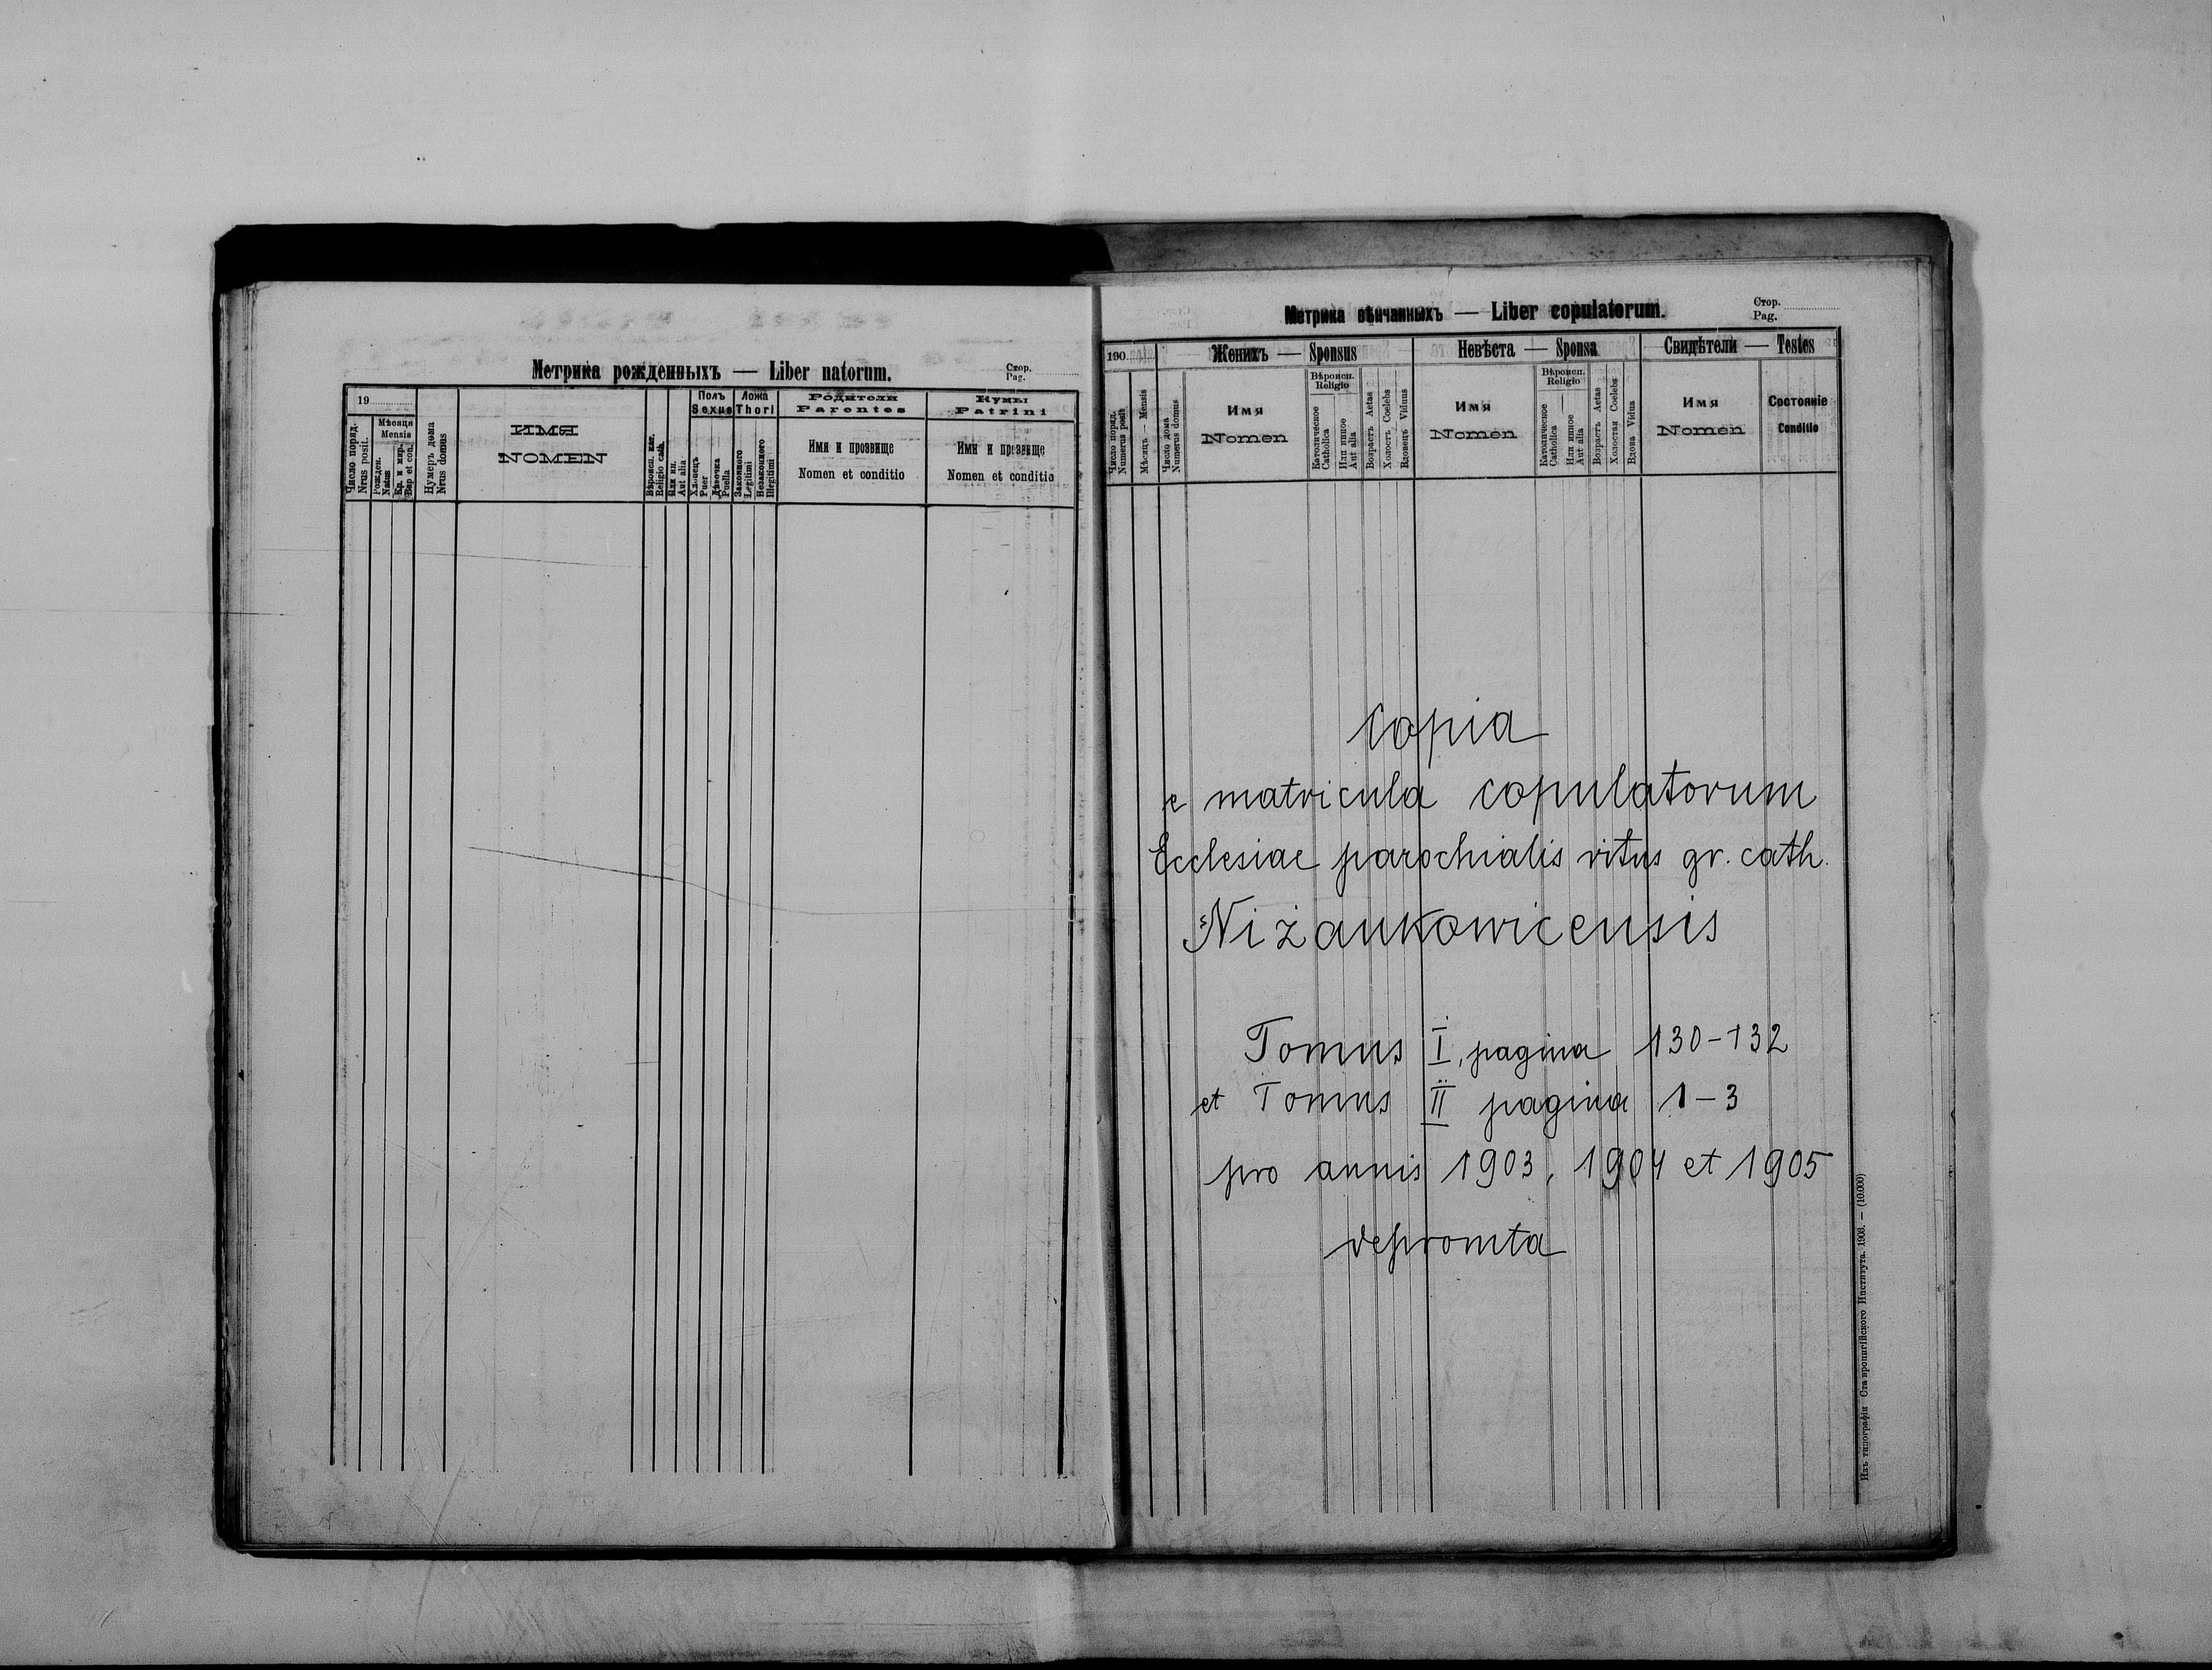 Метрика рожденныхъ — Liber natorum.
Стор.
Pag.
19
Число поряд.
Nrus posit.
Мѣсяця
Mensis
Рожден.
Natus
Кр. и мир.
Bap et con.
Нумеръ дома
Nrus domus
ИМЯ
NOMEN
Вѣроисп. кат.
Religio cath.
Или ин.
Aut alia
Полъ
Sexus
Хлопецъ
Puer
Дѣвочка
Puella
Ложа
Thori
Законного
Legitimi
Незаконного
Illegitimi
Родители
Parentes
Имя и прозвище
Nomen et conditio
Кумы
Patrini
Имя и прозвище
Nomen et conditio
Метрика вѣнчанныхъ — Liber copulatorum.
Стор.
Pag.
190
Число поряд.
Numerus posit.
Мѣсяцъ — Mensis
Число дома
Numerus domus
Женихъ — Sponsus
Имя
Nomen
Вѣроисп.
Religio
Католическое
Catholica
Или инное
Aut alia
Возрастъ Aetas
Холостъ Coelebs
Вдовецъ Viduus
Невѣста — Sponsa
Имя
Nomen
Вѣроисп.
Religio
Католическое
Catholica
Или инное
Aut alia
Возрастъ Aetas
Холостая Coelebs
Вдова Vidua
Свидѣтели — Testes
Имя
Nomen
Состояніе
Conditio
Copia
e matricula copulatorum
Ecclesiae parochialis ritus gr. cath.
Niżankowicensis
Tomus I, pagina 130-132
et Tomus II pagina 1-3
pro annis 1903, 1904 et 1905
depromta
Изъ типографіи Ставропигійского Института. 1908. — (10.000)